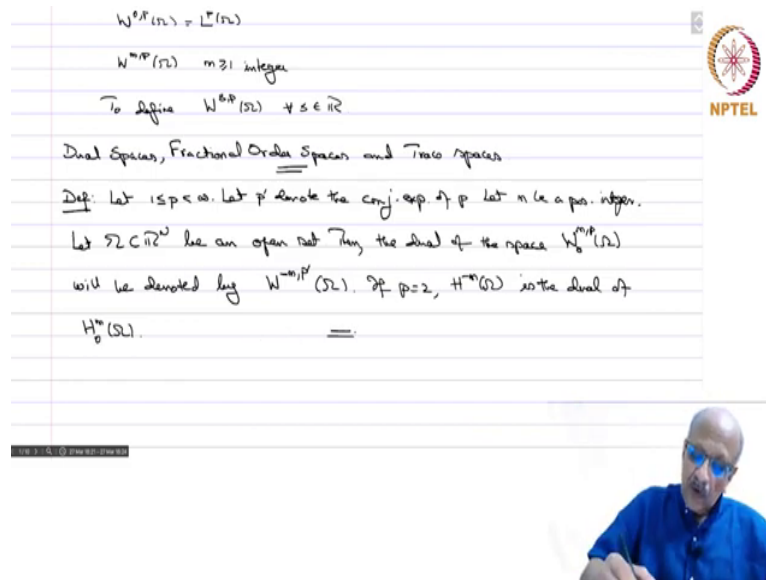 W^{0,p}(Ω) = L^p(Ω)
W^{m,p}(Ω) m≥1 integer
To define W^{s,p}(Ω) ∀ s ∈ ℝ
Dual Spaces, Fractional Order Spaces and Trace spaces
Def: Let 1≤p<∞. Let p' denote the conj. exp. of p Let m be a pos. integer.
Let Ω⊂ℝ^N be an open set Then, the dual of the space W_0^{m,p}(Ω)
will be denoted by W^{-m,p'}(Ω). If p=2, H^{-m}(Ω) is the dual of
H_0^m(Ω).
NPTEL